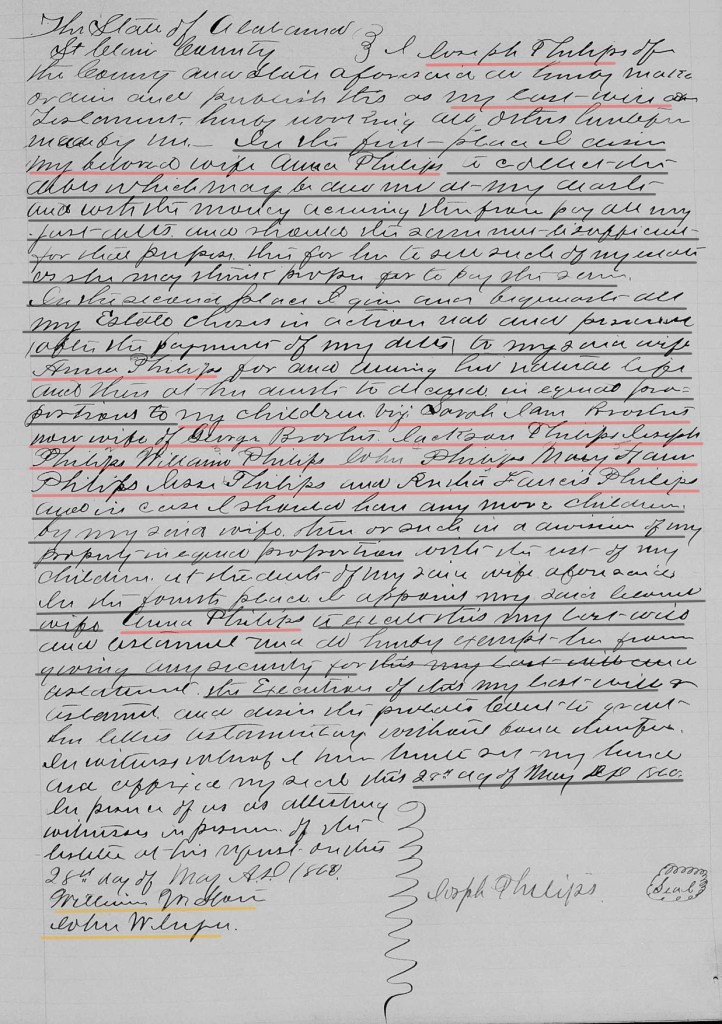 The State of Alabama
St Clair County } I Joseph Philips of
the County and State aforesaid do hereby make
ordain and publish this as my last will and
Testament, hereby revoking all others heretofore
made by me — In the first place I desire
my beloved wife Anna Philips to collect the
debts which may be due me at my death
and with the money accruing therefrom pay all my
just debts and should the same not be sufficient
for that purpose then for her to sell such of my
as she may think proper for to pay the same.
In the second place I give and bequeath all
my Estate choses in action real and personal
(after the payment of my debts) to my said wife
Anna Philips for and during her natural life
and then at her death to in equal pro-
portions to my children viz Sarah Jane
now wife of George Jackson Philips Joseph
Philips William Philips John Philips Mary
Philips Jesse Philips and Francis Philips
and in case I should have any more children
by my said wife in a division of my
property in equal proportion with the rest of my
children at the death of my said wife aforesaid
In the fourth place I appoint my said beloved
wife Anna Philips to execute this my last will
and testament and do hereby exempt her from
giving any security for this my last will and
testament. the Execution of this my last will &
testament and desire the probate Court to grant
her letters testamentary without bond therefor.
In witness whereof I have hereunto set my hand
and affixed my seal this 28th day of May AD 1860.
In presence of us as attesting
witnesses in presence of the
testator at his request on this
28th day of May A.D. 1860.
Joseph Philips. Seal
William
John W.